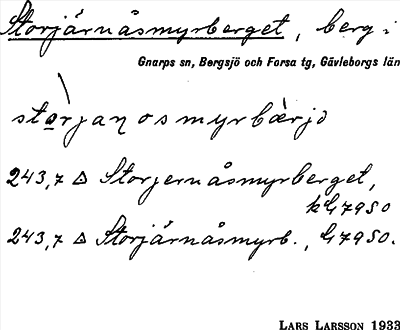 Storjärnåsmyrberget, berg i
Gnarps sn, Bergsjö och Forsa tg, Gävleborgs län
storjan os myrbærjə
243,7 △ Storjernåsmyrberget,
kG7950
243,7 △ Storjärnåsmyrb., G7950.
LARS LARSSON 1933